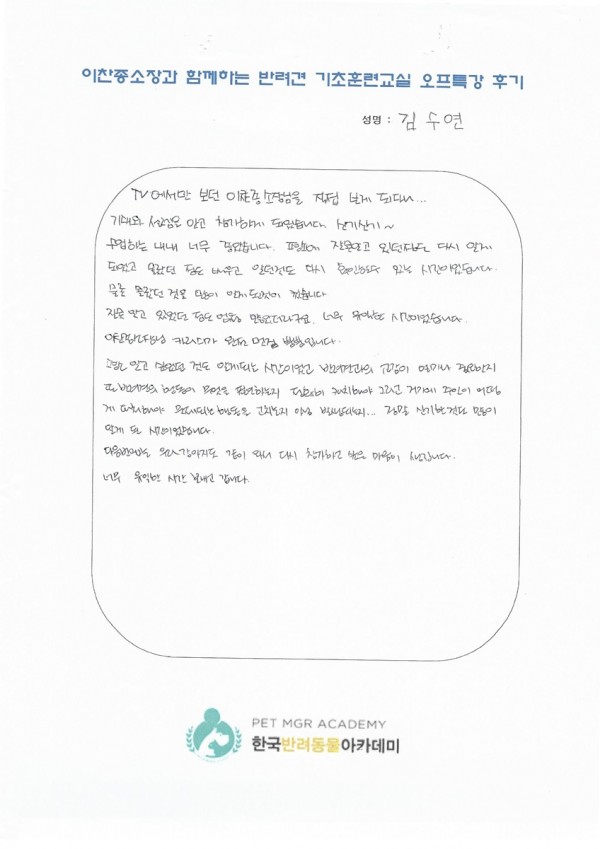 이찬종소장과 함께하는 반려견 기초훈련교실 오프특강 후기
성명 : 김수연
TV에서만 보던 이찬종소장님을 직접 보게 되다니...
기대와 설렘을 안고 참가하게 되었습니다 신기신기~
수업하는 내내 너무 좋았습니다. 평소에 잘못알고 있던지식도 다시 알게
되었고 몰랐던 점도 배우고 알던것도 다시 확인하는 시간이었습니다.
물론 몰랐던 것을 많이 알게된것이 컸습니다
잘못 알고 있었던 점도 엄청 많았더라구요. 너무 유익한 시간이었습니다.
카리스마가 완전 멋짐 뿜뿜입니다.
알고 있었던 것도 알게되는 시간이었고 반려견과의 교감이 얼마나 중요한지
또 반려견의 행동이 무엇을 표현하는지 그리고 거기에 주인이 어떻
게 대처해야 행동을 정말 신기한것도 많이
알게 된 시간이었습니다.
다음번에는 우리강아지도 같이 와서 다시 참가하고 싶은 마음이 생깁니다.
너무 유익한 시간 보내고 갑니다.
PET MGR ACADEMY
한국반려동물아카데미